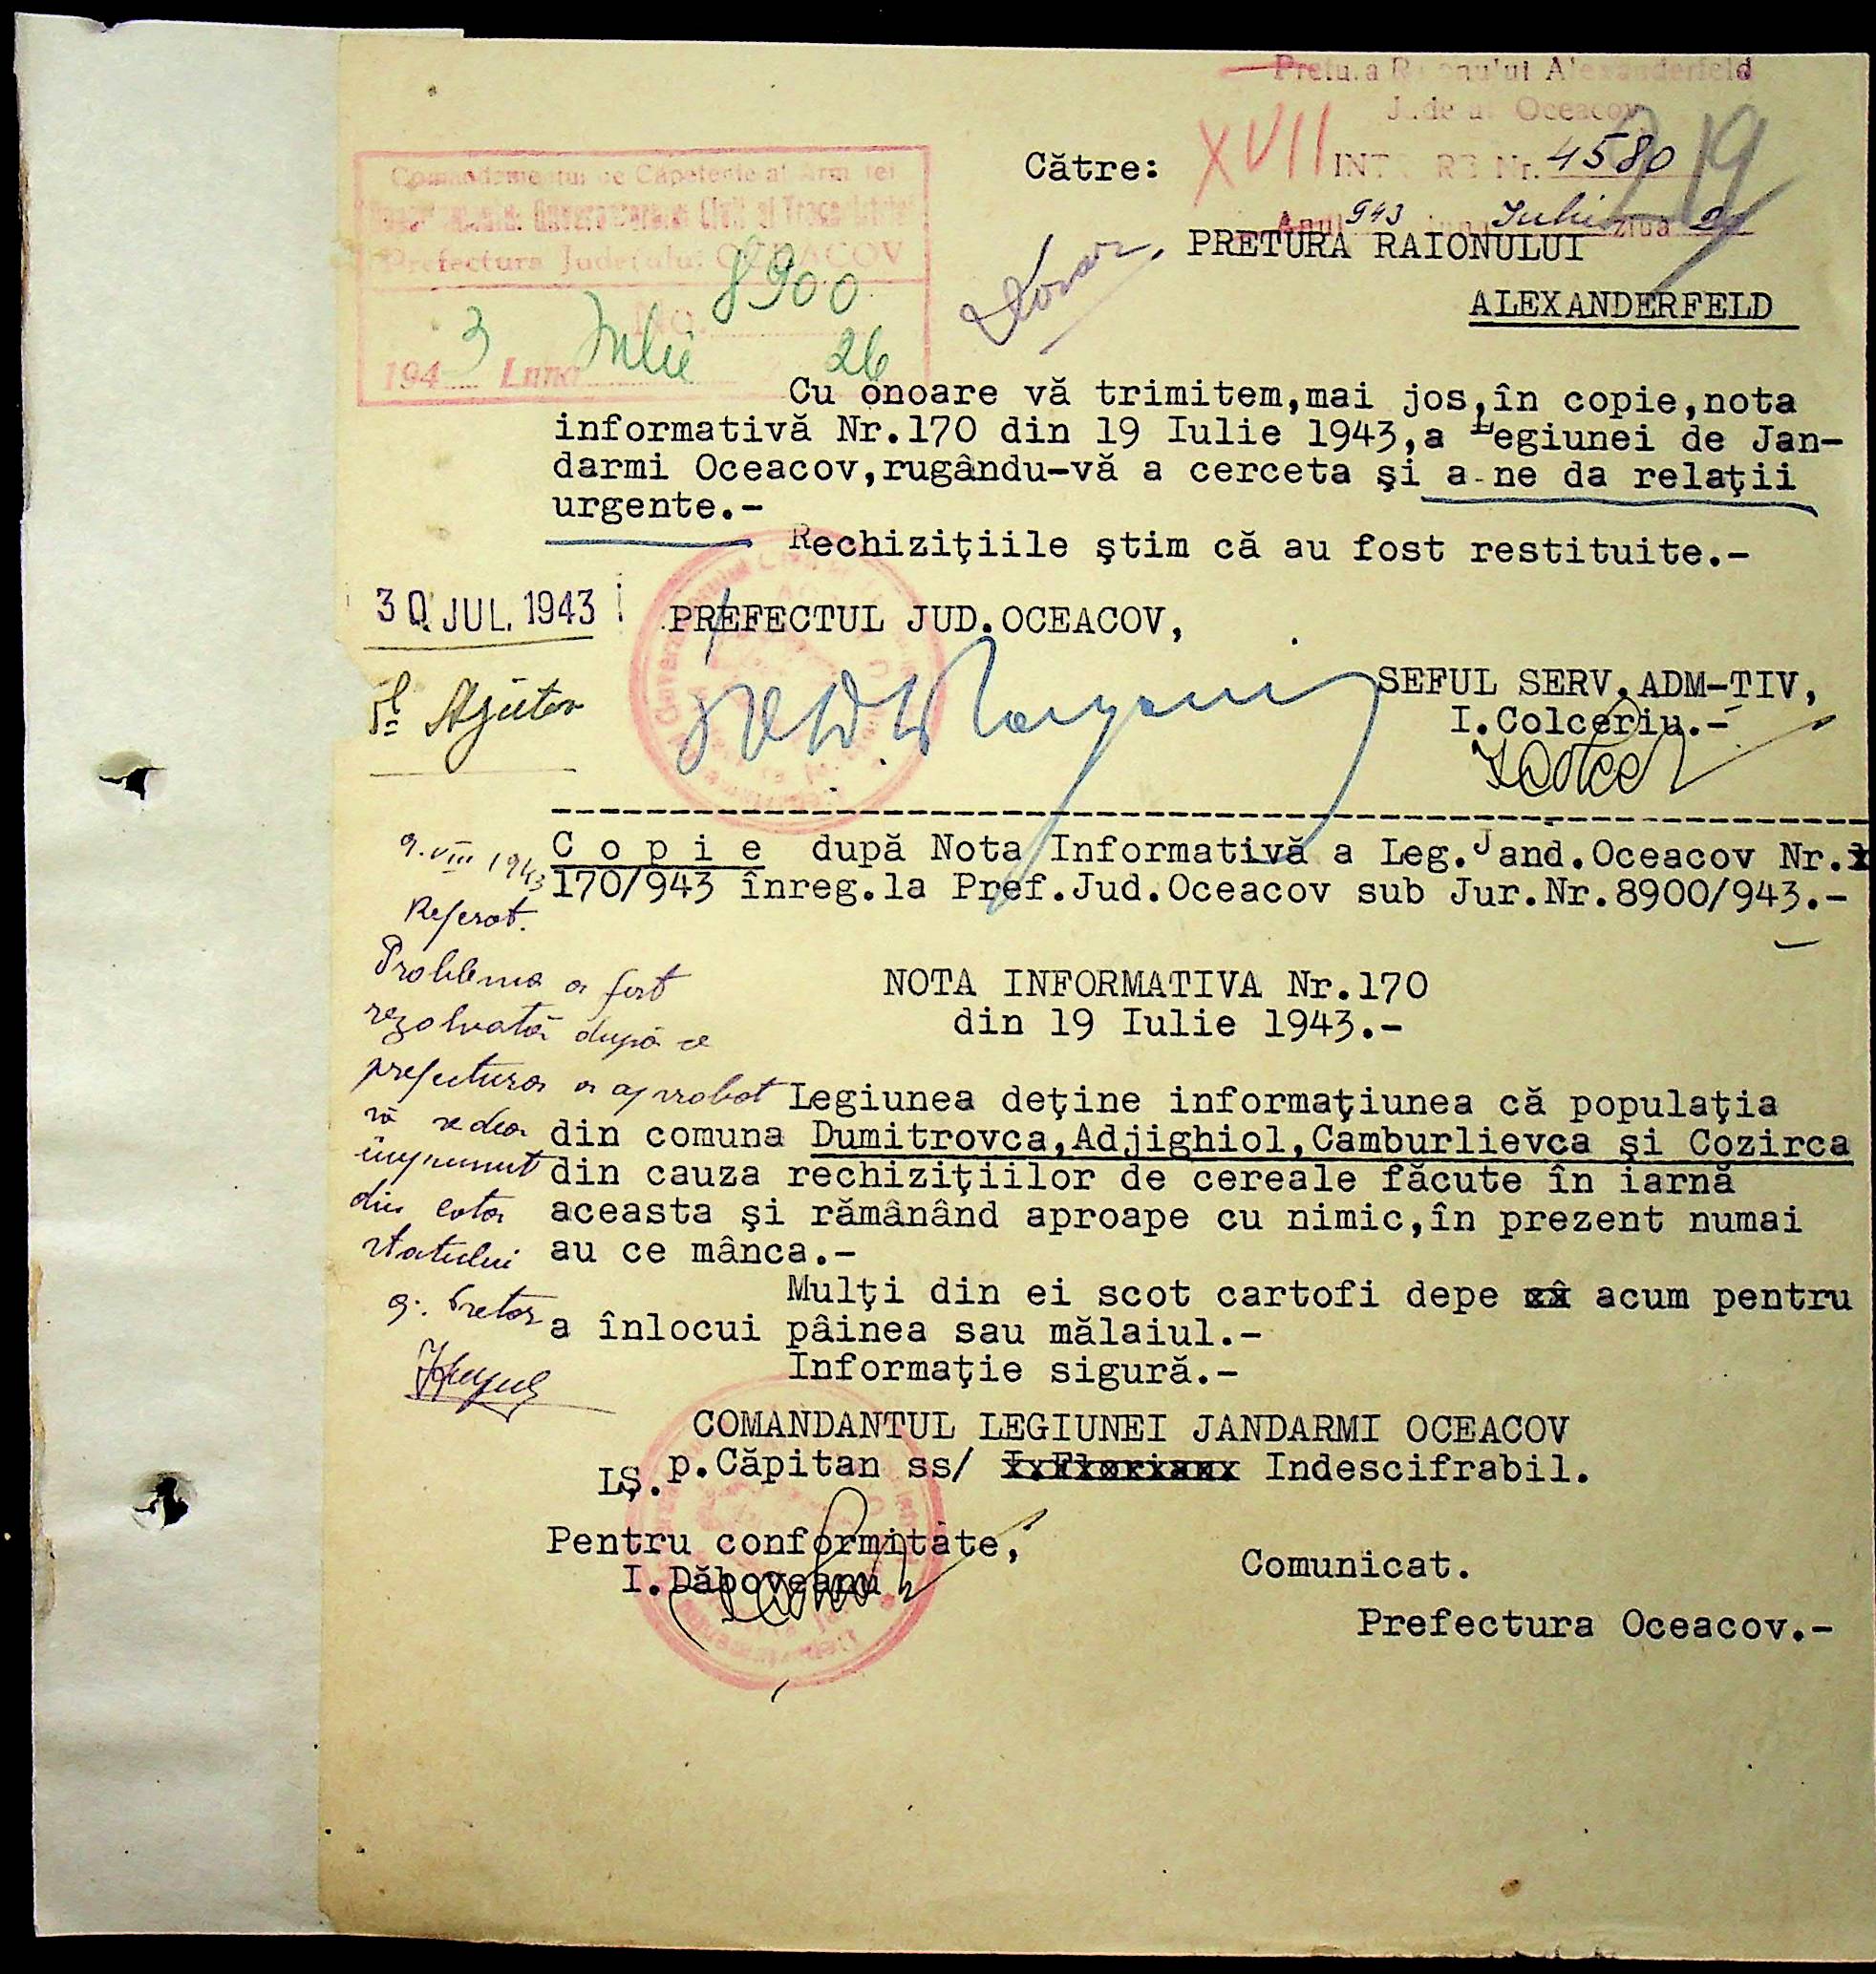 Raionului Alexanderfeld
Oceacov
XVII
Nr. 4580
219
943 Iulie ziua
Comandamentul de Căpetenie al Armatei
Prefectura Județului OCEACOV
No. 8900
1943 Luna Iulie 26
Către:
PRETURA RAIONULUI
ALEXANDERFELD
Cu onoare vă trimitem,mai jos,în copie,nota
informativă Nr.170 din 19 Iulie 1943,a Legiunei de Jan-
darmi Oceacov,rugându-vă a cerceta şi a-ne da relaţii
urgente.-
Rechiziţiile ştim că au fost restituite.-
30 JUL. 1943
PREFECTUL JUD.OCEACOV,
SEFUL SERV.ADM-TIV,
I.Colceriu.-
C o p i e după Nota Informativă a Leg.Jand.Oceacov Nr.
170/943 înreg.la Pref.Jud.Oceacov sub Jur.Nr.8900/943.-
NOTA INFORMATIVA Nr.170
din 19 Iulie 1943.-
Legiunea deţine informaţiunea că populaţia
din comuna Dumitrovca,Adjighiol,Camburlievca şi Cozirca
din cauza rechiziţiilor de cereale făcute în iarnă
aceasta şi rămânând aproape cu nimic,în prezent numai
au ce mânca.-
Mulţi din ei scot cartofi depe acum pentru
a înlocui pâinea sau mălaiul.-
Informaţie sigură.-
COMANDANTUL LEGIUNEI JANDARMI OCEACOV
LŞ. p.Căpitan ss/ Indescifrabil.
Pentru conformitate,
I.Dăboveanu
Comunicat.
Prefectura Oceacov.-
9.VIII 1943
Referat.
Problema a fost
rezolvată după ce
prefectura a aprobat
să se dea
împrumut
din cota
Statului
Pretor